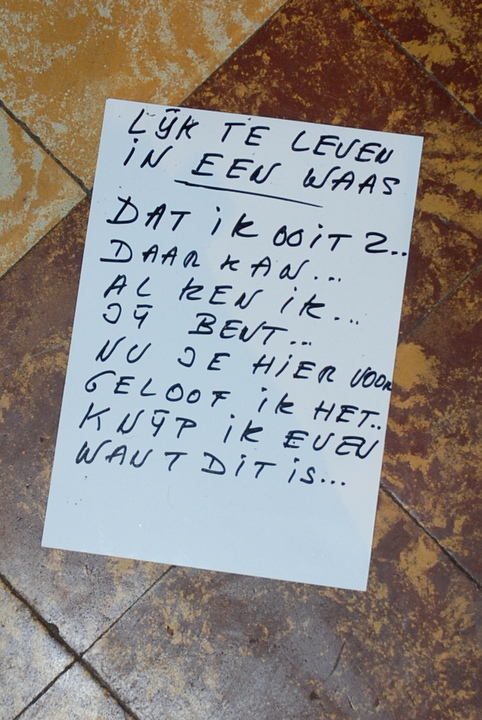 LIJK TE LEVEN
IN EEN WAAS
DAT IK OOIT Z..
DAAR KAN...
AL KEN IK...
JIJ BENT...
NU JE HIER VOOR
GELOOF IK HET..
KNIJP IK EVEN
WANT DIT IS...